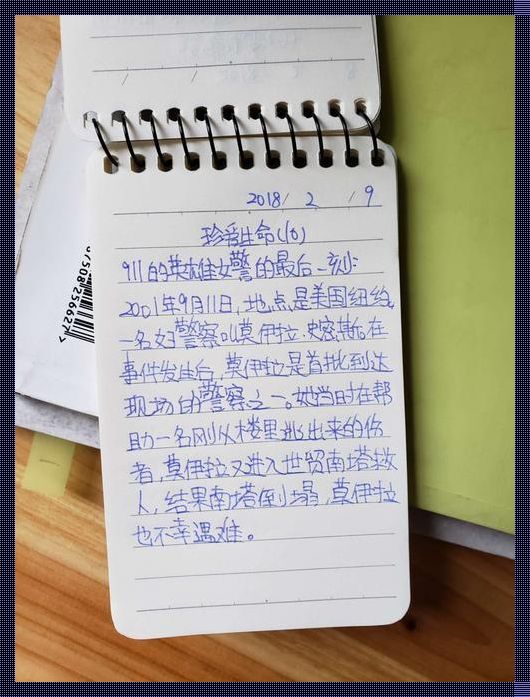 2018/ 2 /9
珍爱生命(10)
911的英雄女警的最后一刻
2001年9月11日,地点是美国纽约,
一名女警察叫莫伊拉.史密斯。在
事件发生后,莫伊拉是首批到达
现场的警察之一。她当时在帮
助一名刚从楼里逃出来的伤
者,莫伊拉又进入世贸南塔救
人,结果南塔倒塌,莫伊拉
也不幸遇难。